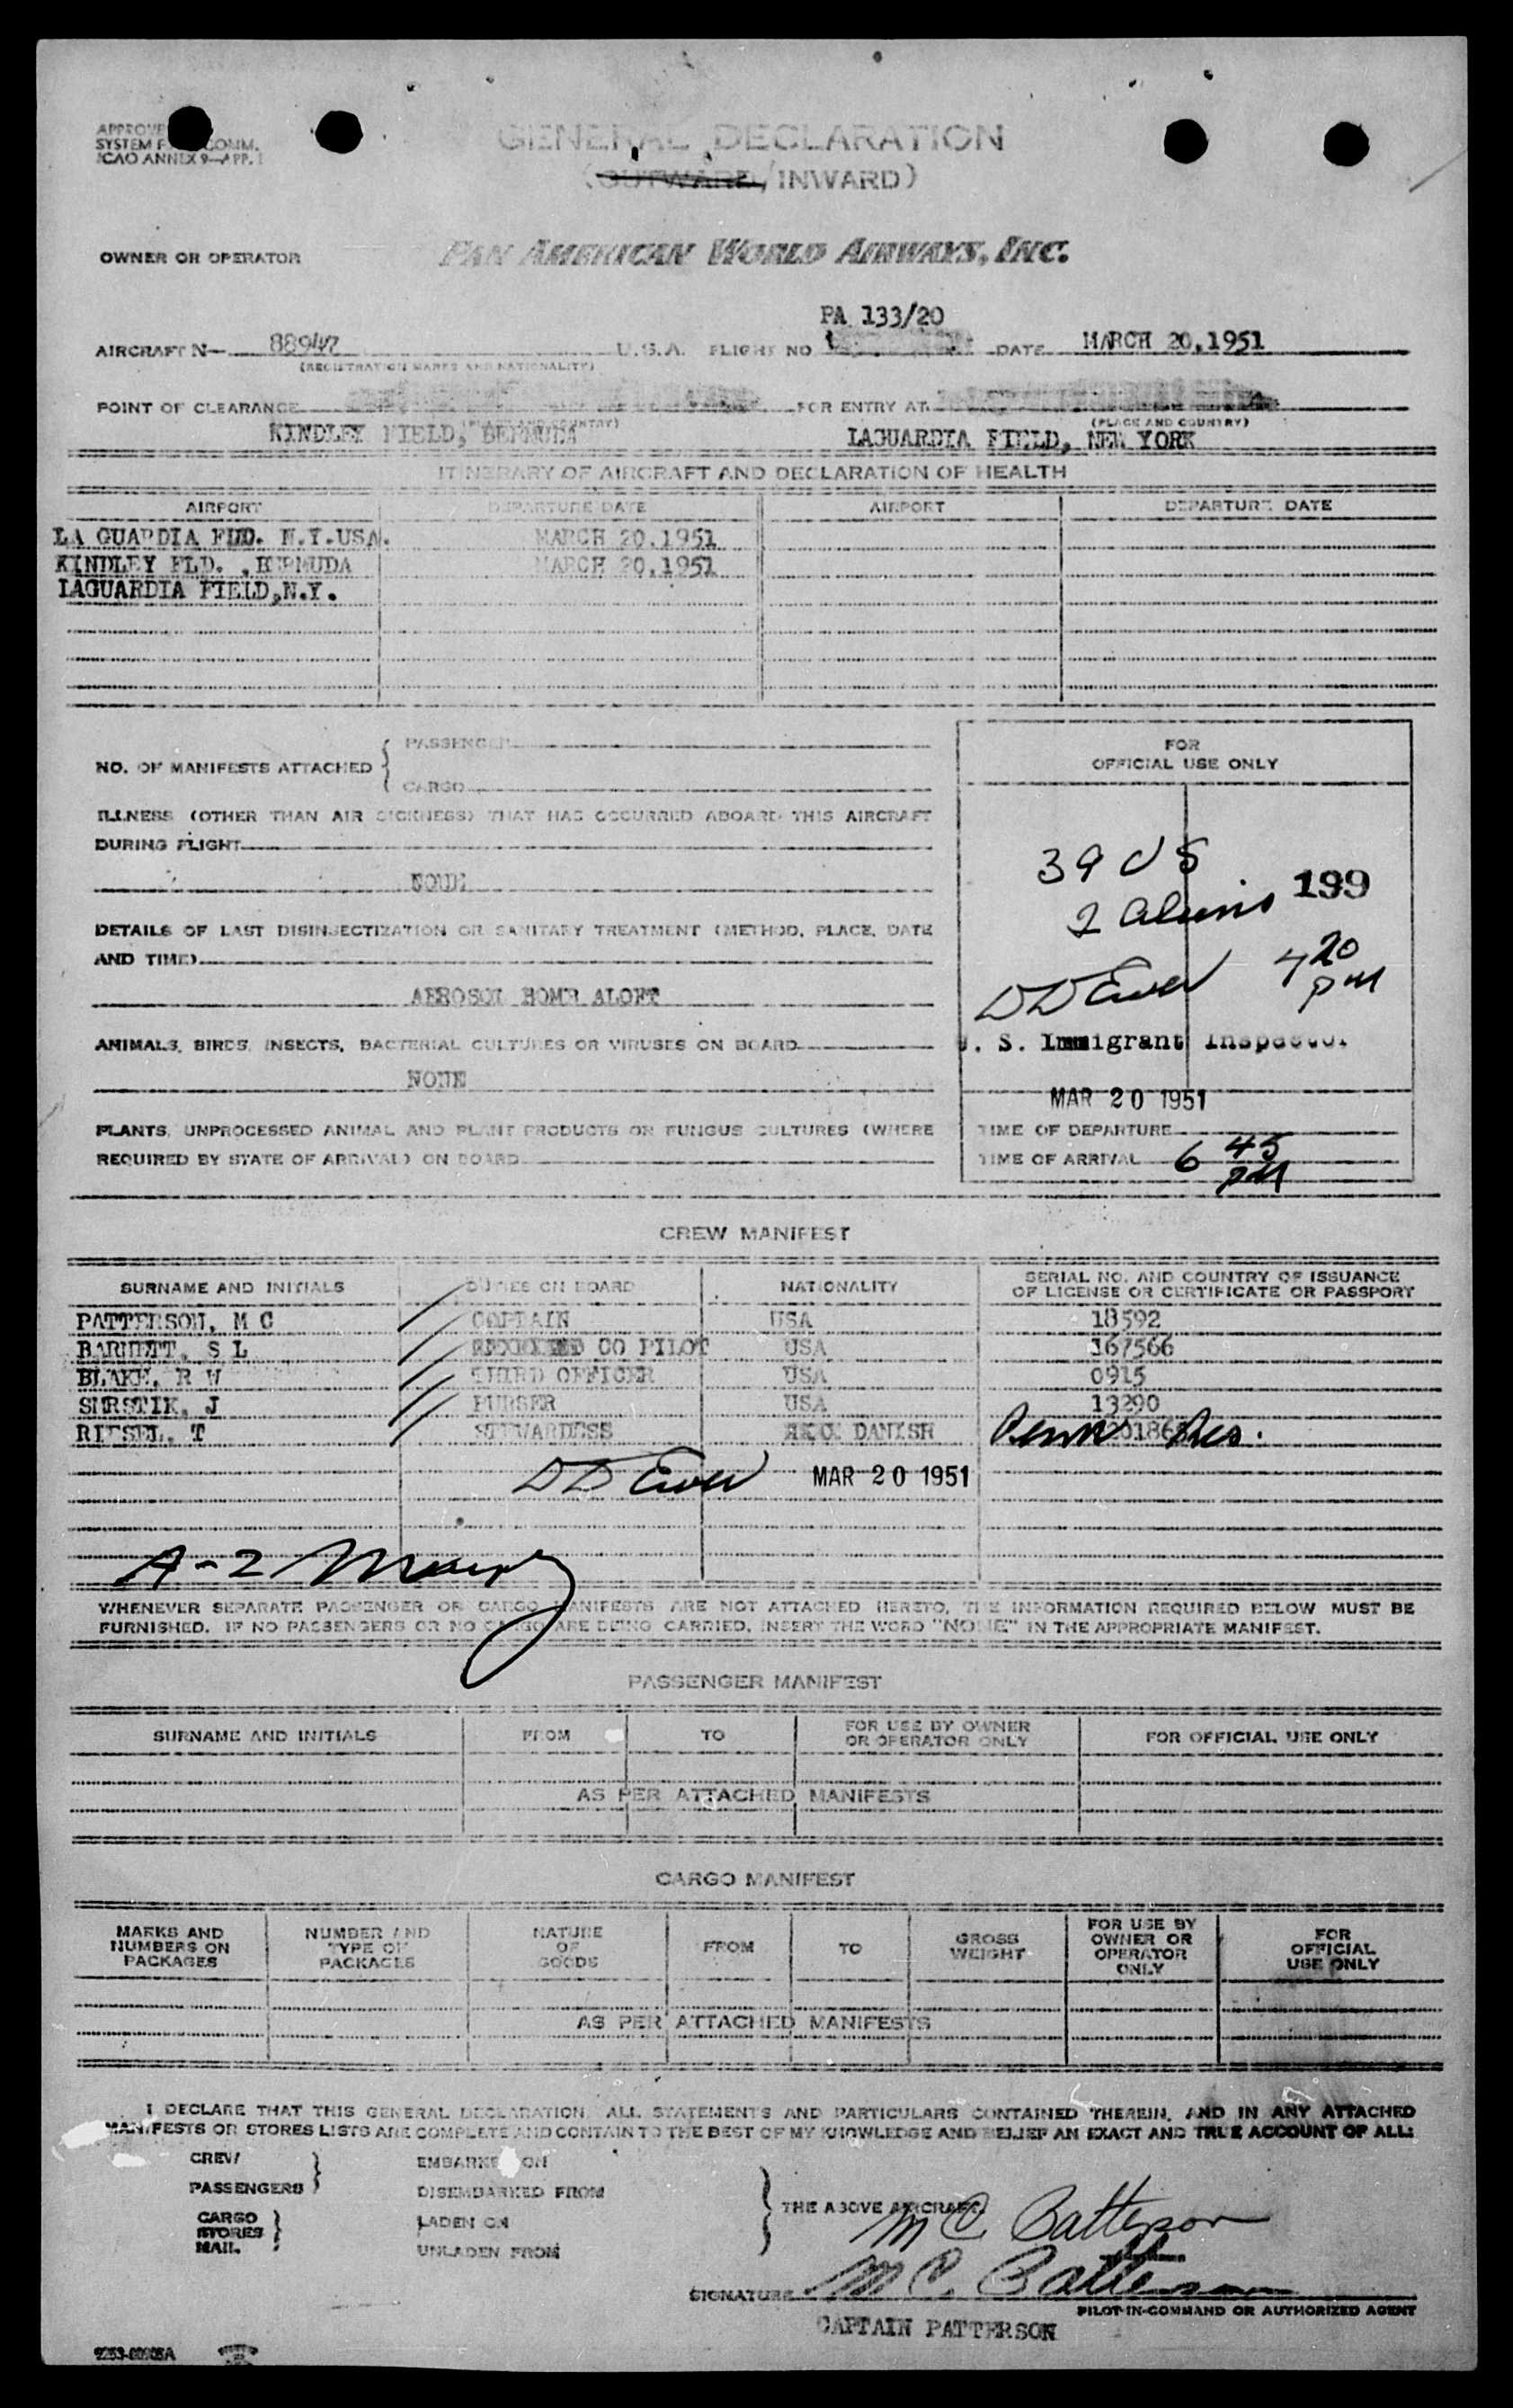 GENERAL DECLARATION
(OUTWARD/INWARD)
SYSTEM COMM.
ICAO ANNEX 9—APP. I
OWNER OR OPERATOR PAN AMERICAN WORLD AIRWAYS, INC.
PA 133/20
AIRCRAFT N— 88947 U.S.A. FLIGHT NO DATE MARCH 20,1951
(REGISTRATION MARKS AND NATIONALITY)
POINT OF CLEARANCE FOR ENTRY AT
(PLACE AND COUNTRY)
KINDLEY FIELD, BERMUDA LAGUARDIA FIELD, NEW YORK
ITINERARY OF AIRCRAFT AND DECLARATION OF HEALTH
AIRPORT DEPARTURE DATE AIRPORT DEPARTURE DATE
LA GUARDIA FLD. N.Y.USA. MARCH 20,1951
KINDLEY FLD. ,BERMUDA MARCH 20,1951
LAGUARDIA FIELD,N.Y.
NO. OF MANIFESTS ATTACHED { PASSENGER
CARGO
ILLNESS (OTHER THAN AIR SICKNESS) THAT HAS OCCURRED ABOARD THIS AIRCRAFT
DURING FLIGHT
NONE
DETAILS OF LAST DISINSECTIZATION OR SANITARY TREATMENT (METHOD, PLACE, DATE
AND TIME)
AEROSOL BOMB ALOFT
ANIMALS, BIRDS, INSECTS, BACTERIAL CULTURES OR VIRUSES ON BOARD
NONE
PLANTS, UNPROCESSED ANIMAL AND PLANT PRODUCTS OR FUNGUS CULTURES (WHERE
REQUIRED BY STATE OF ARRIVAL) ON BOARD
FOR
OFFICIAL USE ONLY
39 US
2 aliens 199
DD Ewer 7 20 PM
U. S. Immigrant Inspector
MAR 20 1951
TIME OF DEPARTURE
TIME OF ARRIVAL 6 45 PM
CREW MANIFEST
SURNAME AND INITIALS DUTIES ON BOARD NATIONALITY SERIAL NO. AND COUNTRY OF ISSUANCE
OF LICENSE OR CERTIFICATE OR PASSPORT
PATTERSON, M C CAPTAIN USA 18592
BARNETT, S L CO PILOT USA 167566
BLAKE, R W THIRD OFFICER USA 0915
SMRSTIK, J PURSER USA 13290
RIESEL, T STEWARDESS DANISH Perm Res.
DD Ewer MAR 20 1951
A-2 Murphy
WHENEVER SEPARATE PASSENGER OR CARGO MANIFESTS ARE NOT ATTACHED HERETO, THE INFORMATION REQUIRED BELOW MUST BE
FURNISHED. IF NO PASSENGERS OR NO CARGO ARE BEING CARRIED, INSERT THE WORD "NONE" IN THE APPROPRIATE MANIFEST.
PASSENGER MANIFEST
SURNAME AND INITIALS FROM TO FOR USE BY OWNER
OR OPERATOR ONLY FOR OFFICIAL USE ONLY
AS PER ATTACHED MANIFESTS
CARGO MANIFEST
MARKS AND
NUMBERS ON
PACKAGES
NUMBER AND
TYPE OF
PACKAGES
NATURE
OF
GOODS
FROM
TO
GROSS
WEIGHT
FOR USE BY
OWNER OR
OPERATOR
ONLY
FOR
OFFICIAL
USE ONLY
AS PER ATTACHED MANIFESTS
I DECLARE THAT THIS GENERAL DECLARATION, ALL STATEMENTS AND PARTICULARS CONTAINED THEREIN, AND IN ANY ATTACHED
MANIFESTS OR STORES LISTS ARE COMPLETE AND CONTAIN TO THE BEST OF MY KNOWLEDGE AND BELIEF AN EXACT AND TRUE ACCOUNT OF ALL:
CREW
PASSENGERS
CARGO
STORES
MAIL
EMBARKED ON
DISEMBARKED FROM
LADEN ON
UNLADEN FROM
THE ABOVE AIRCRAFT
M C Patterson
SIGNATURE M C. Patterson
PILOT-IN-COMMAND OR AUTHORIZED AGENT
CAPTAIN PATTERSON